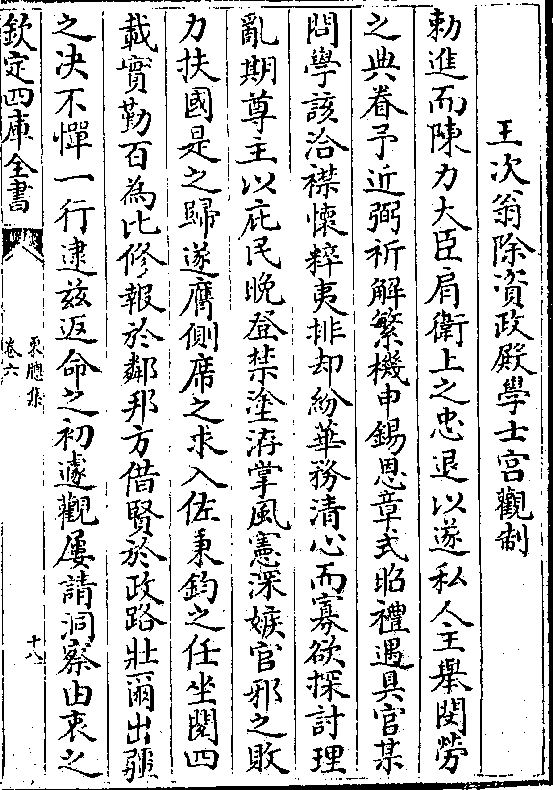 王次翁除資政殿學士宮觀制
勅進而陳力大臣肩衛上之忠退以遂私人主舉閔勞
之典眷予近弼祈解繁機申錫恩章式昭禮遇具官某
問學該洽襟懷粹夷排却紛華務清心而寡欲探討理
亂期尊主以庇民晚登禁塗洊掌風憲深嫉官邪之敗
力扶國是之歸遂膺側席之求入佐秉鈞之任坐閱四
載實勤百為比修報於鄰邦方借賢於政路壯爾出疆
之决不憚一行逮兹返命之初遽觀屢請洞察由衷之
欽定四庫全書
東牕集
卷六
十八